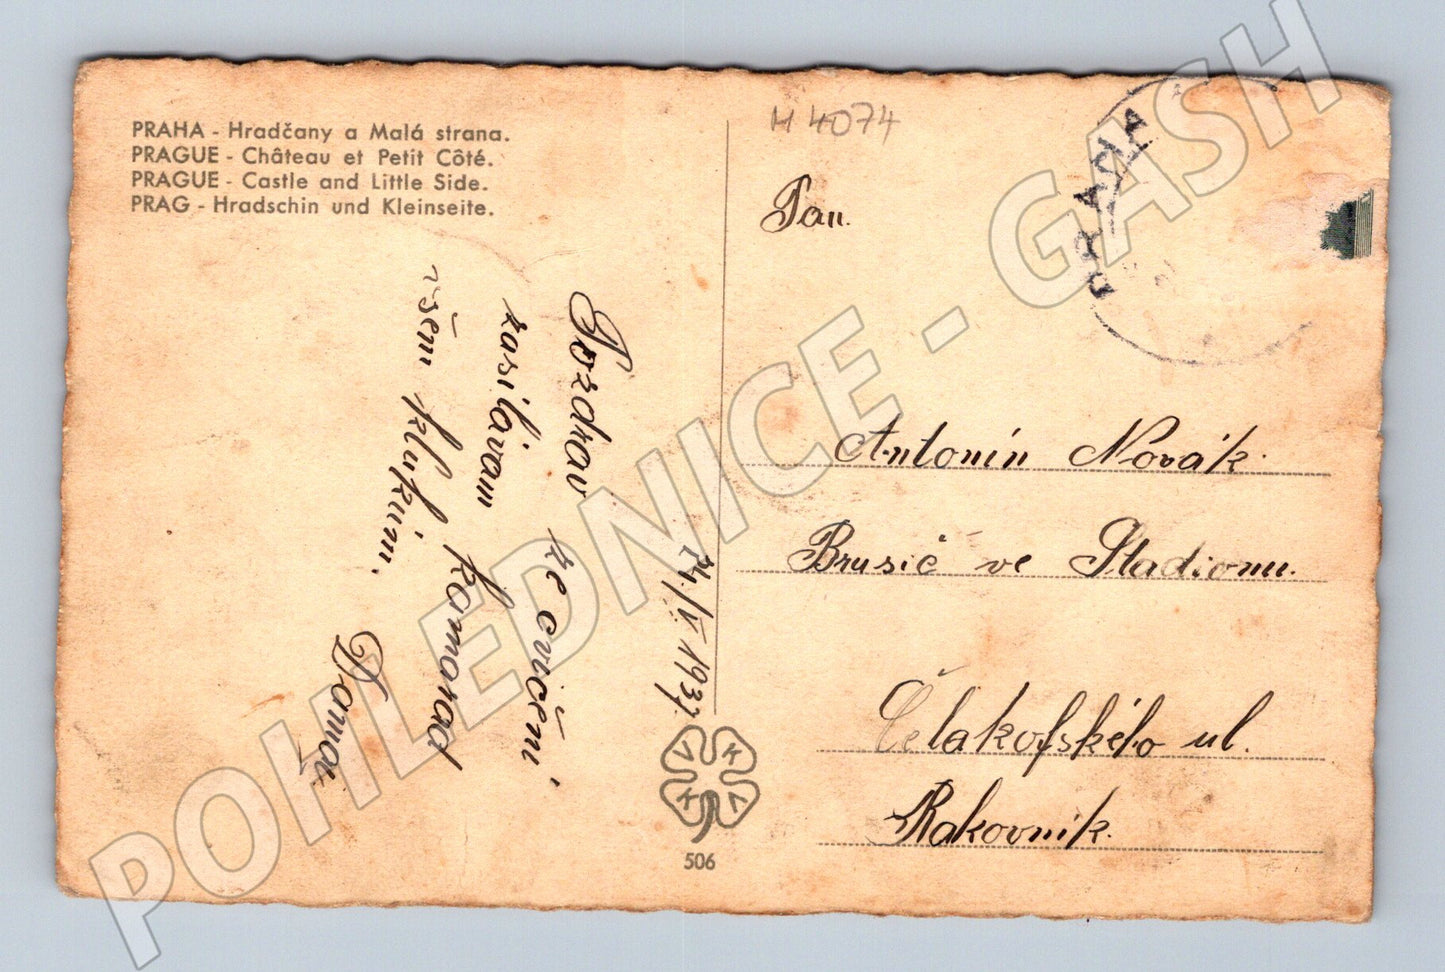 PRAHA - Hradčany a Malá strana.
PRAGUE - Château et Petit Côté.
PRAGUE - Castle and Little Side.
PRAG - Hradschin und Kleinseite.
H 4074
PRAHA
Pan.
Antonín Novák.
Brusič ve Stadionu.
Čelakofského ul.
Rakovník.
24/V 1937
Pozdrav ze cvičení
zasilávam kamarad
všem klukům.
V K
K V
506
POHLEDNICE - GASH